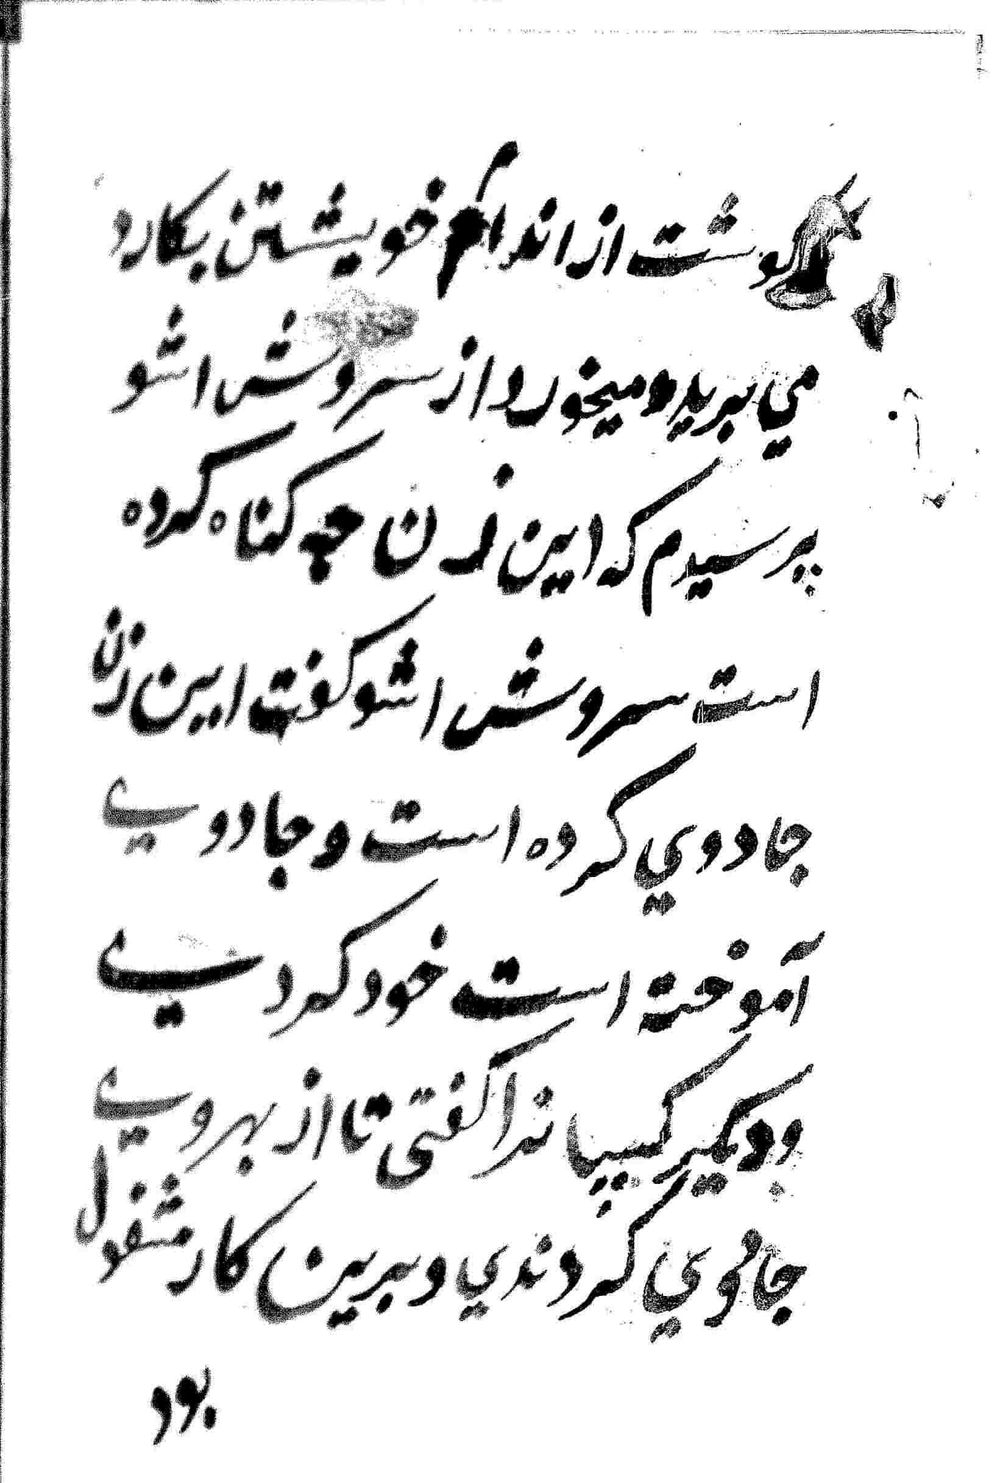 گوشت از اندام خویشتن بکارد
مي برید و میخورد و از سروش اشو
پرسیدم که این زن چه کناه کرده
است سروش اشو کفت این زن
جادوي کرده است و جادویي
آموخته است خود کردیي
و دیکر کسیانرا کفتی تا از بهر ویي
جادوي کردندي و برین کار مشغول
بود